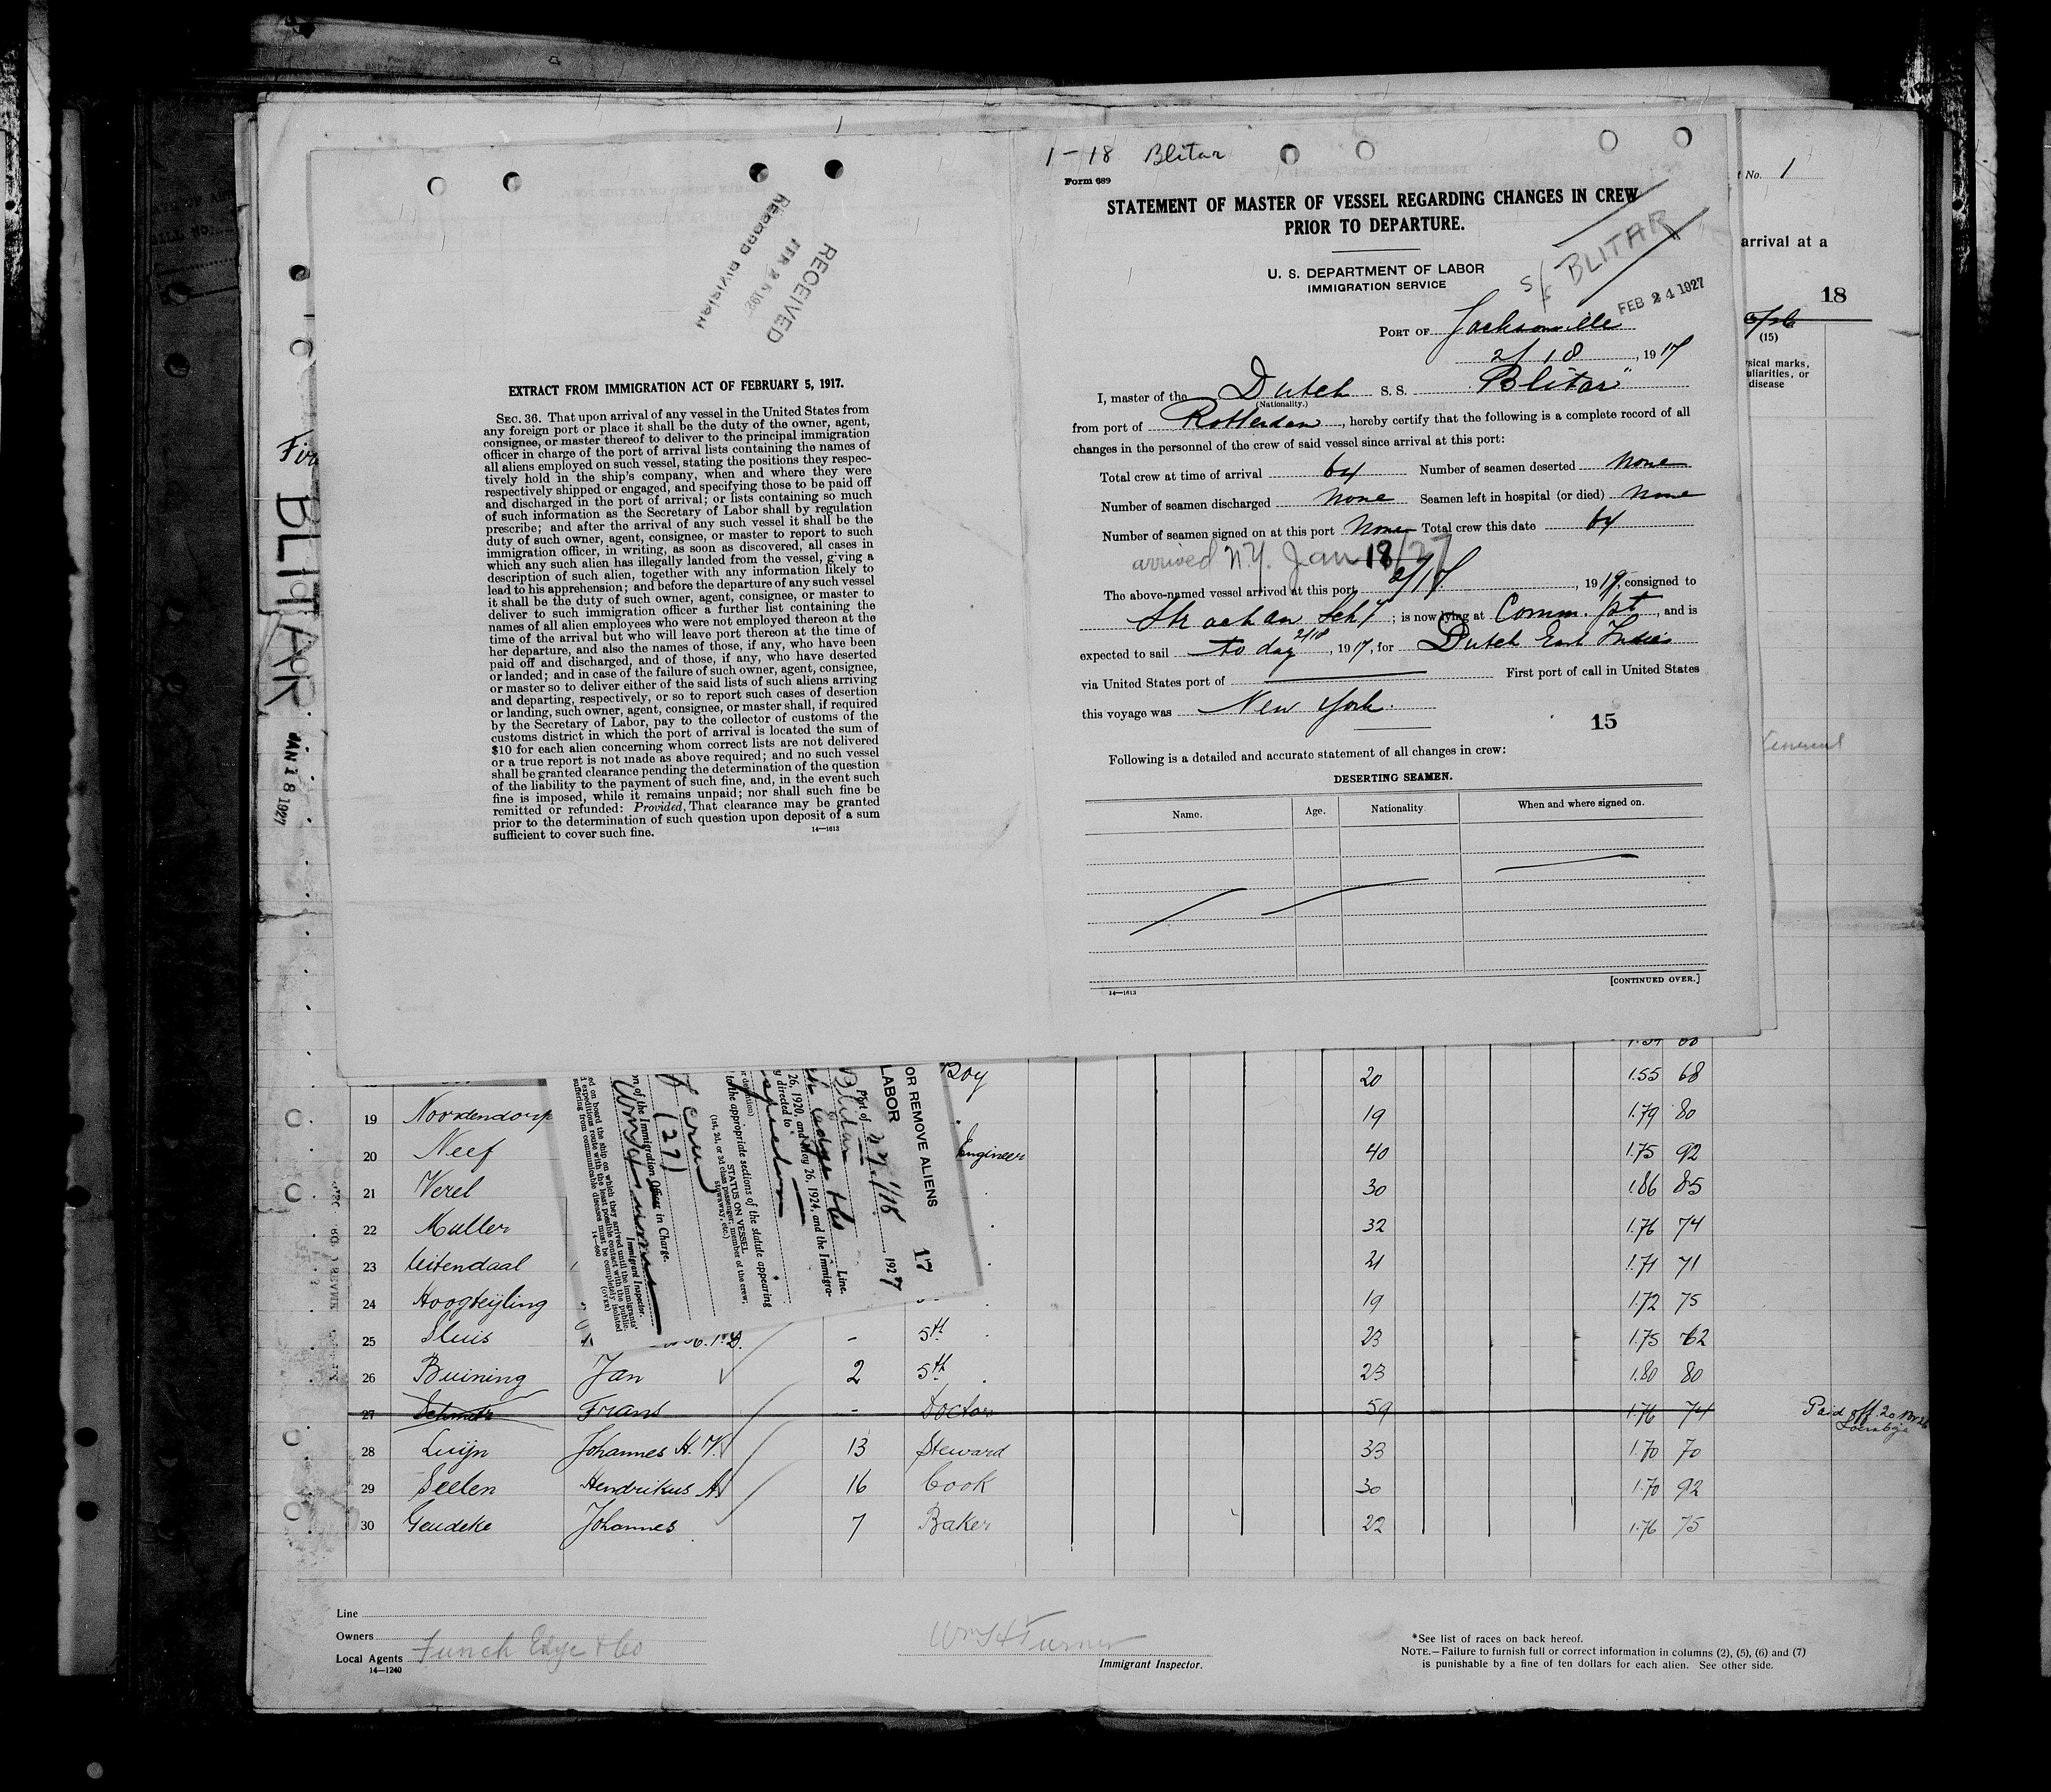 1-18 Blitar
Form 689
STATEMENT OF MASTER OF VESSEL REGARDING CHANGES IN CREW
PRIOR TO DEPARTURE.
U. S. DEPARTMENT OF LABOR
IMMIGRATION SERVICE
S/S BLITAR
FEB 24 1927
PORT OF Jacksonville
2/18, 1917
I, master of the Dutch S. S. "Blitar"
(Nationality.)
from port of Rotterdam, hereby certify that the following is a complete record of all
changes in the personnel of the crew of said vessel since arrival at this port:
Total crew at time of arrival 64 Number of seamen deserted None
Number of seamen discharged None Seamen left in hospital (or died) None
Number of seamen signed on at this port None Total crew this date 64
arrived N.Y. Jan 18/27
The above-named vessel arrived at this port 2/17, 19 , consigned to
Strachan ; is now lying at Comm. , and is
expected to sail to day 2/18, 1917, for Dutch East Indies
via United States port of First port of call in United States
this voyage was New York.
15
Following is a detailed and accurate statement of all changes in crew:
DESERTING SEAMEN.
Name. Age. Nationality. When and where signed on.
[CONTINUED OVER.]
14—1613
RECEIVED
FEB 26 192
RECORD DIVISION
EXTRACT FROM IMMIGRATION ACT OF FEBRUARY 5, 1917.
SEC. 36. That upon arrival of any vessel in the United States from
any foreign port or place it shall be the duty of the owner, agent,
consignee, or master thereof to deliver to the principal immigration
officer in charge of the port of arrival lists containing the names of
all aliens employed on such vessel, stating the positions they respec-
tively hold in the ship's company, when and where they were
respectively shipped or engaged, and specifying those to be paid off
and discharged in the port of arrival; or lists containing so much
of such information as the Secretary of Labor shall by regulation
prescribe; and after the arrival of any such vessel it shall be the
duty of such owner, agent, consignee, or master to report to such
immigration officer, in writing, as soon as discovered, all cases in
which any such alien has illegally landed from the vessel, giving a
description of such alien, together with any information likely to
lead to his apprehension; and before the departure of any such vessel
it shall be the duty of such owner, agent, consignee, or master to
deliver to such immigration officer a further list containing the
names of all alien employees who were not employed thereon at the
time of the arrival but who will leave port thereon at the time of
her departure, and also the names of those, if any, who have been
paid off and discharged, and of those, if any, who have deserted
or landed; and in case of the failure of such owner, agent, consignee,
or master so to deliver either of the said lists of such aliens arriving
and departing, respectively, or so to report such cases of desertion
or landing, such owner, agent, consignee, or master shall, if required
by the Secretary of Labor, pay to the collector of customs of the
customs district in which the port of arrival is located the sum of
$10 for each alien concerning whom correct lists are not delivered
or a true report is not made as above required; and no such vessel
shall be granted clearance pending the determination of the question
of the liability to the payment of such fine, and, in the event such
fine is imposed, while it remains unpaid; nor shall such fine be
remitted or refunded: Provided, That clearance may be granted
prior to the determination of such question upon deposit of a sum
sufficient to cover such fine.
14—1613
No. 1
arrival at a
18
(15)
sical marks,
uliarities, or
disease
BLITAR
JAN 18 1927
OR REMOVE ALIENS 17
LABOR
Port of N.Y. 1/18 1927
Blitar
Line.
26, 1920, and May 26, 1924, and the Immigra-
y directed to
to the appropriate sections of the statute appearing
STATUS ON VESSEL
(1st, 2d, or 3d class passenger, member of the crew,
stowaway, etc.)
crew
(27)
on of the Immigration Officer in Charge.
Immigrant Inspector.
ed on board the ship on which they arrived until the immigrants'
expeditious route with the least possible contact with the public.
suffering from communicable diseases must be completely isolated
14—660 (OVER)
Boy 20 1.55 68
19 Noordendorp 19 1.79 80
20 Neef Engineer 40 1.75 92
21 Verel 30 1.86 85
22 Muller 32 1.76 74
23 Uitendaal 21 1.71 71
24 Hoogteyling 19 1.72 75
25 Sluis - 5th 23 1.75 62
26 Buining Jan 2 5th 23 1.80 80
27 Schmitz Frans - Doctor 59 1.76 74 Paid off 20
28 Luijn Johannes H. V. 13 Steward 33 1.70 70
29 Seelen Hendrikus A. 16 Cook 30 1.70 92
30 Geudeke Johannes 7 Baker 22 1.76 75
Line
Owners
Local Agents Funch Edye & Co
14—1240
Wm H Turner
Immigrant Inspector.
*See list of races on back hereof.
NOTE.—Failure to furnish full or correct information in columns (2), (5), (6) and (7)
is punishable by a fine of ten dollars for each alien. See other side.